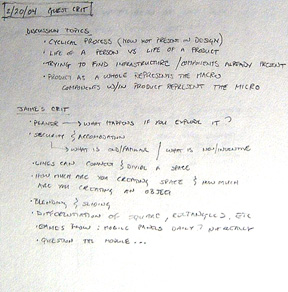 1/20/04 GUEST CRIT
DISCUSSION TOPICS
• CYCLICAL PROCESS (HOW NOT PRESENT IN DESIGN)
• LIFE OF A PERSON VS LIFE OF A PRODUCT
• TRYING TO FIND INFRASTRUCTURE / COMPONENTS ALREADY PRESENT
• PRODUCT AS A WHOLE REPRESENTS THE MACRO
COMPONENTS W/IN PRODUCT REPRESENT THE MICRO
CRIT
• → WHAT HAPPENS IF YOU EXPLORE IT?
• SECURITY &
→ WHAT IS / WHAT IS
• LINES CAN CONNECT & DIVIDE A SPACE
• HOW ARE YOU CREATING SPACE & HOW MUCH
ARE YOU CREATING AN OBJECT
• BLENDING & SLIDING
• DIFFERENTIATION OF SQUARE, RECTANGLES, ETC
• : MOBILE DAILY?
• QUESTION THE MOBILE...